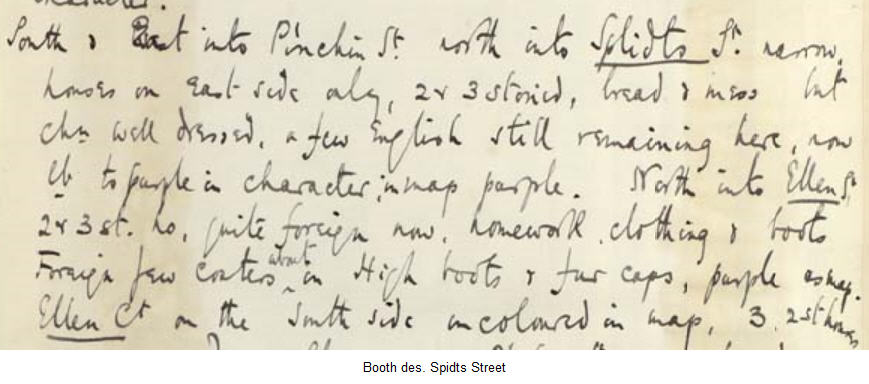 character.
South & East into Pinchin St. north into Splidts St. narrow.
houses on East side only, 2 & 3 storied, bread & mess but
chn well dressed, a few English still remaining here, now
lb to purple in character; in map purple. North into Ellen St,
2 & 3 st. ho, quite foreign now, homework. clothing & boots
Foreign Jew coster about in High boots & fur caps, purple as map.
Ellen Ct on the South side uncoloured in map, 3. 2 st houses
Booth des. Spidts Street